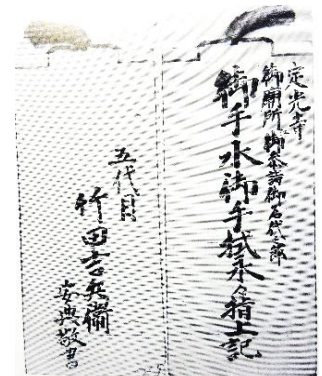 定光寺
御廟所御参詣御名代之節
御手水御手拭永々指上記
五代目
竹田吉兵衛
安典敬書